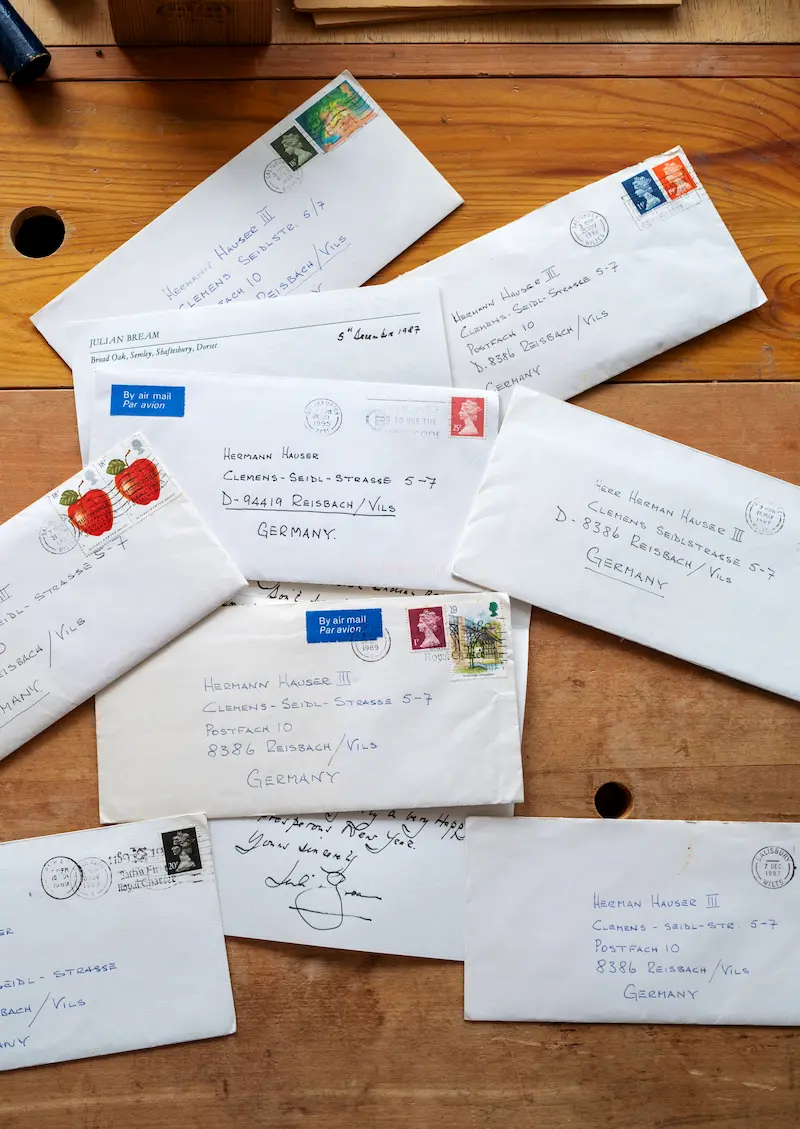 HERMANN HAUSER III
CLEMENS SEIDLSTR. 5/7
POSTFACH 10
REISBACH/VILS
HERMANN HAUSER III
CLEMENS-SEIDL-STRASSE 5-7
POSTFACH 10
D. 8386 REISBACH/VILS
GERMANY
JULIAN BREAM
Broad Oak, Semley, Shaftesbury, Dorset.
5th December 1987
By air mail
Par avion
1995
TO USE THE
25
HERMANN HAUSER
CLEMENS-SEIDL-STRASSE 5-7
D-94419 REISBACH/VILS
GERMANY.
HERR HERMAN HAUSER III
CLEMENS SEIDLSTRASSE 5-7
D-8386 REISBACH/VILS
GERMANY
III
SEIDL-STRASSE 5-7
REISBACH/VILS
GERMANY
By air mail
Par avion
1989
19
HERMANN HAUSER III
CLEMENS-SEIDL-STRASSE 5-7
POSTFACH 10
8386 REISBACH/VILS
GERMANY
a very Happy
Prosperous New Year.
Yours sincerely
Julian Bream
1989
Royal Charter
20P
SEIDL-STRASSE
BACH/VILS
ANY
SALISBURY
7 DEC
1987
WILTS
HERMAN HAUSER III
CLEMENS-SEIDL-STR. 5-7
POSTFACH 10
8386 REISBACH/VILS
GERMANY